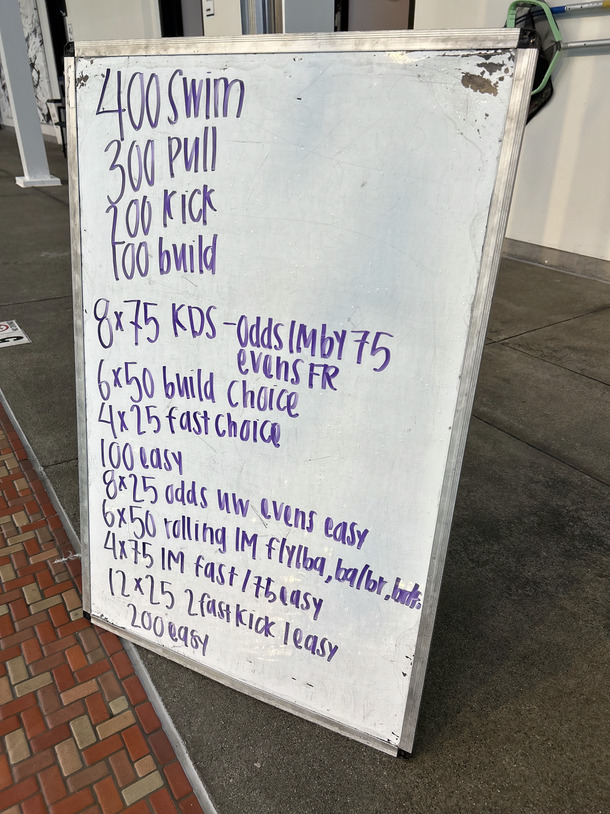 400 Swim
300 pull
200 Kick
100 build
8x75 KDS - odds IM by 75
evens FR
6x50 build choice
4x25 fast choice
100 easy
8x25 odds uw evens easy
6x50 rolling IM fly/ba, ba/br,
4x75 IM fast / 75 easy
12x25 2 fast kick 1 easy
200 easy